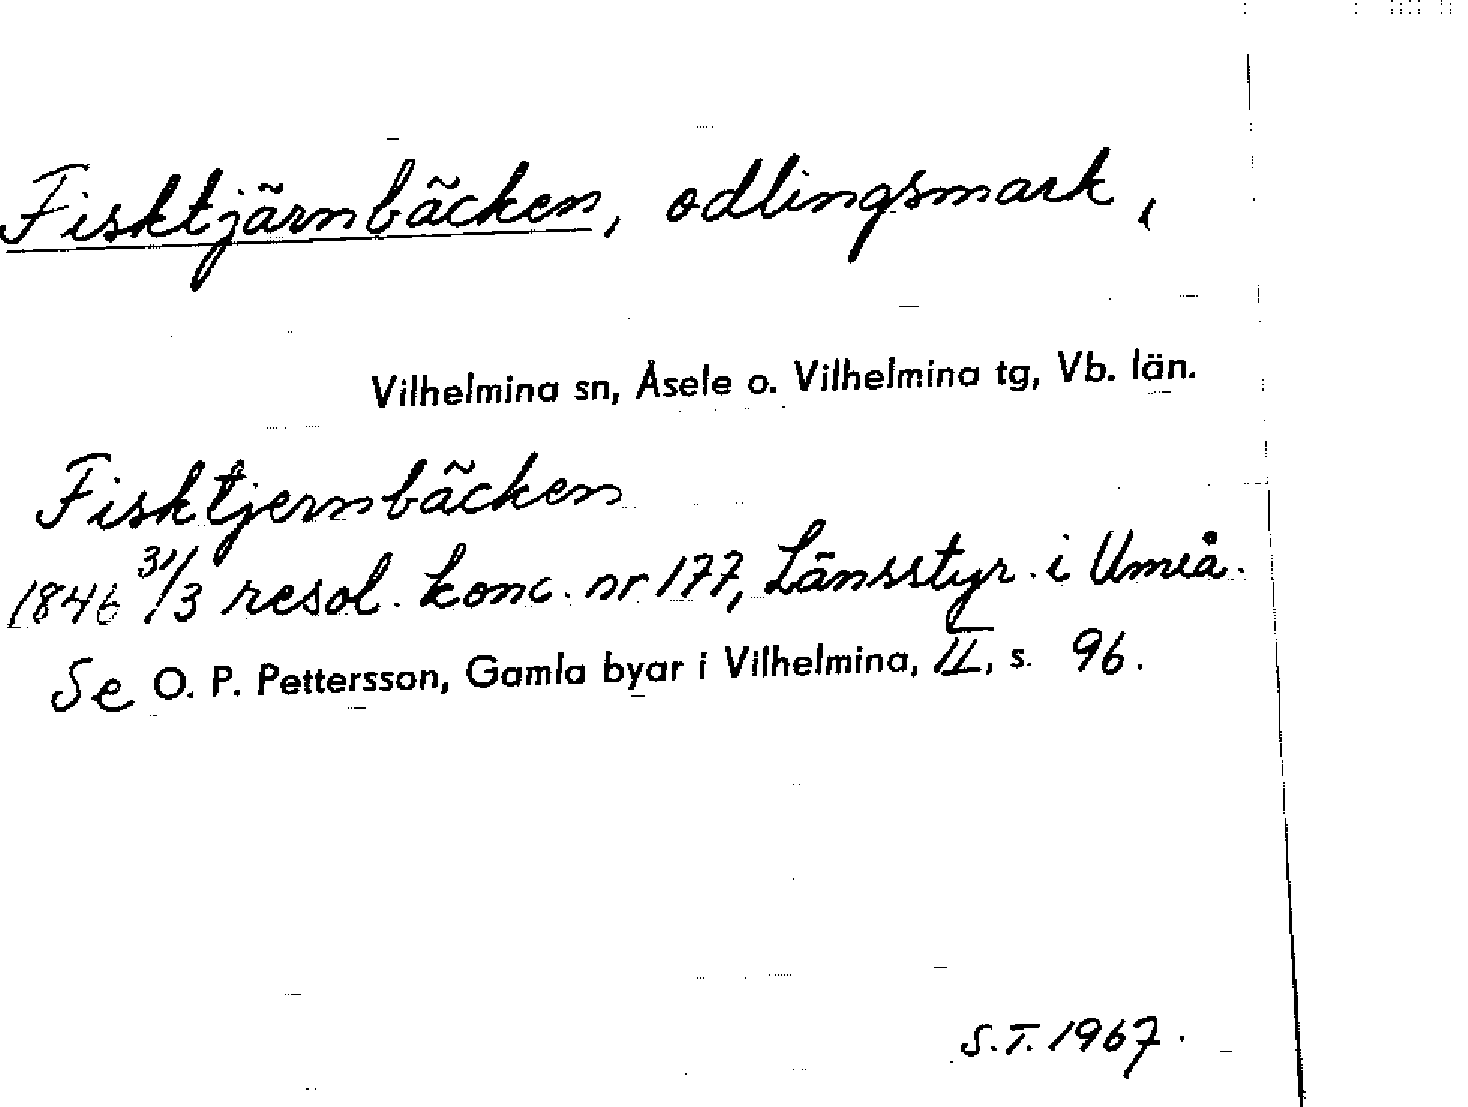 Fisktjärnbäcken, odlingsmark,
Vilhelmina sn, Åsele o. Vilhelmina tg, Vb. län.
Fisktjernbäcken
1846 31/3 resol. konc. nr 177, Länsstyr. i Umeå.
Se O. P. Pettersson, Gamla byar i Vilhelmina, II, s. 96.
S.T. 1967.